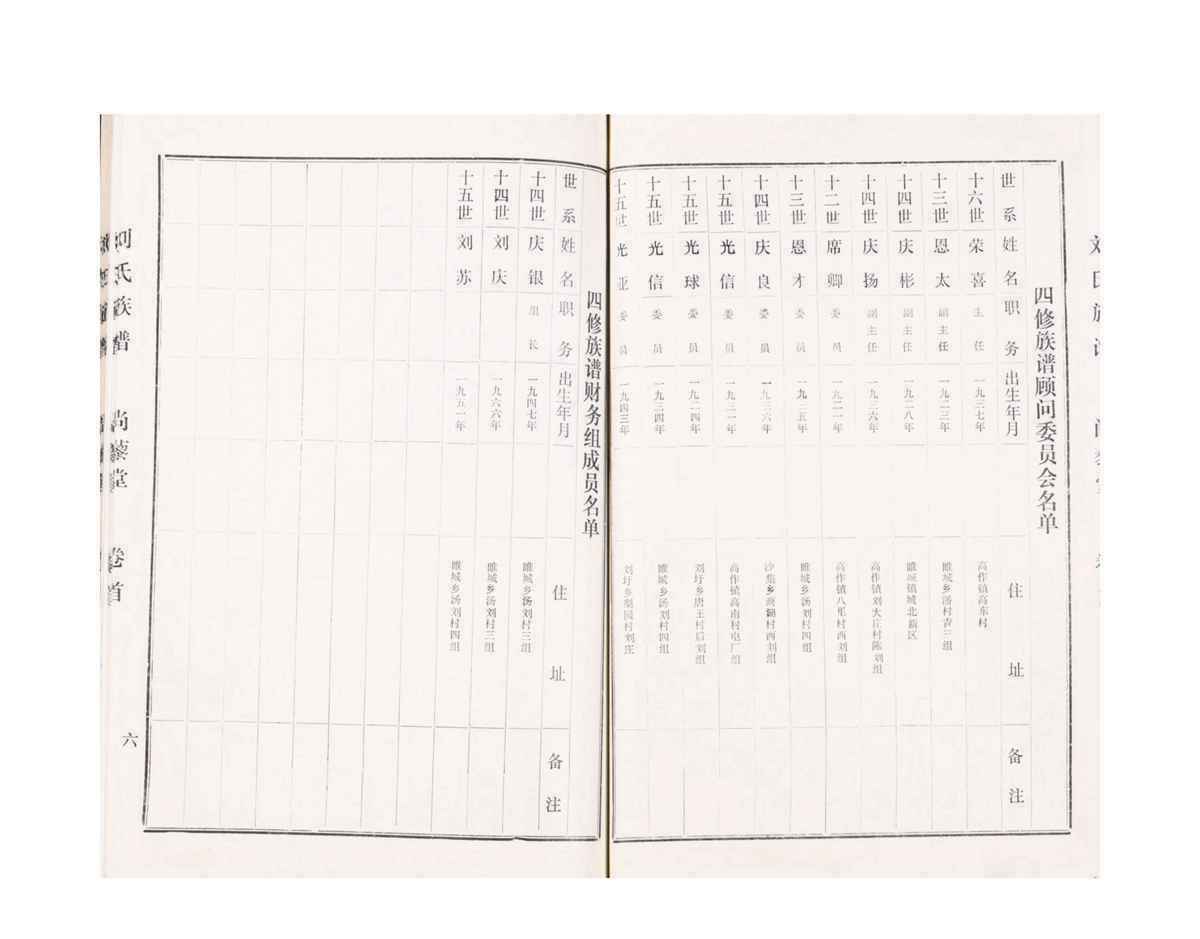 四修族谱顾问委员会名单
世系 姓名 职务 出生年月 住址 备注
十六世 荣喜 主任 一九三七年 高作镇高东村
十三世 恩太 副主任 一九二三年 睢城乡汤村青三组
十四世 庆彬 副主任 一九二八年 睢城镇城北新区
十四世 庆扬 副主任 一九三六年 高作镇刘大庄村陈刘组
十二世 席卿 委员 一九二一年 高作镇八里村西刘组
十三世 恩才 委员 一九三五年 睢城乡汤刘村四组
十四世 庆良 委员 一九三六年 沙集乡 村西刘组
十五世 光信 委员 一九三一年 高作镇高南村电厂组
十五世 光球 委员 一九二四年 刘圩乡唐王村后刘组
十五世 光信 委员 一九三四年 睢城乡汤刘村四组
十五世 光亚 委员 一九四三年 刘圩乡梨园村刘庄
四修族谱财务组成员名单
世系 姓名 职务 出生年月 住址 备注
十四世 庆银 组长 一九四七年 睢城乡汤刘村三组
十四世 刘庆 一九六六年 睢城乡汤刘村三组
十五世 刘苏 一九五一年 睢城乡汤刘村四组
刘氏族谱 尚藜堂 卷首 六